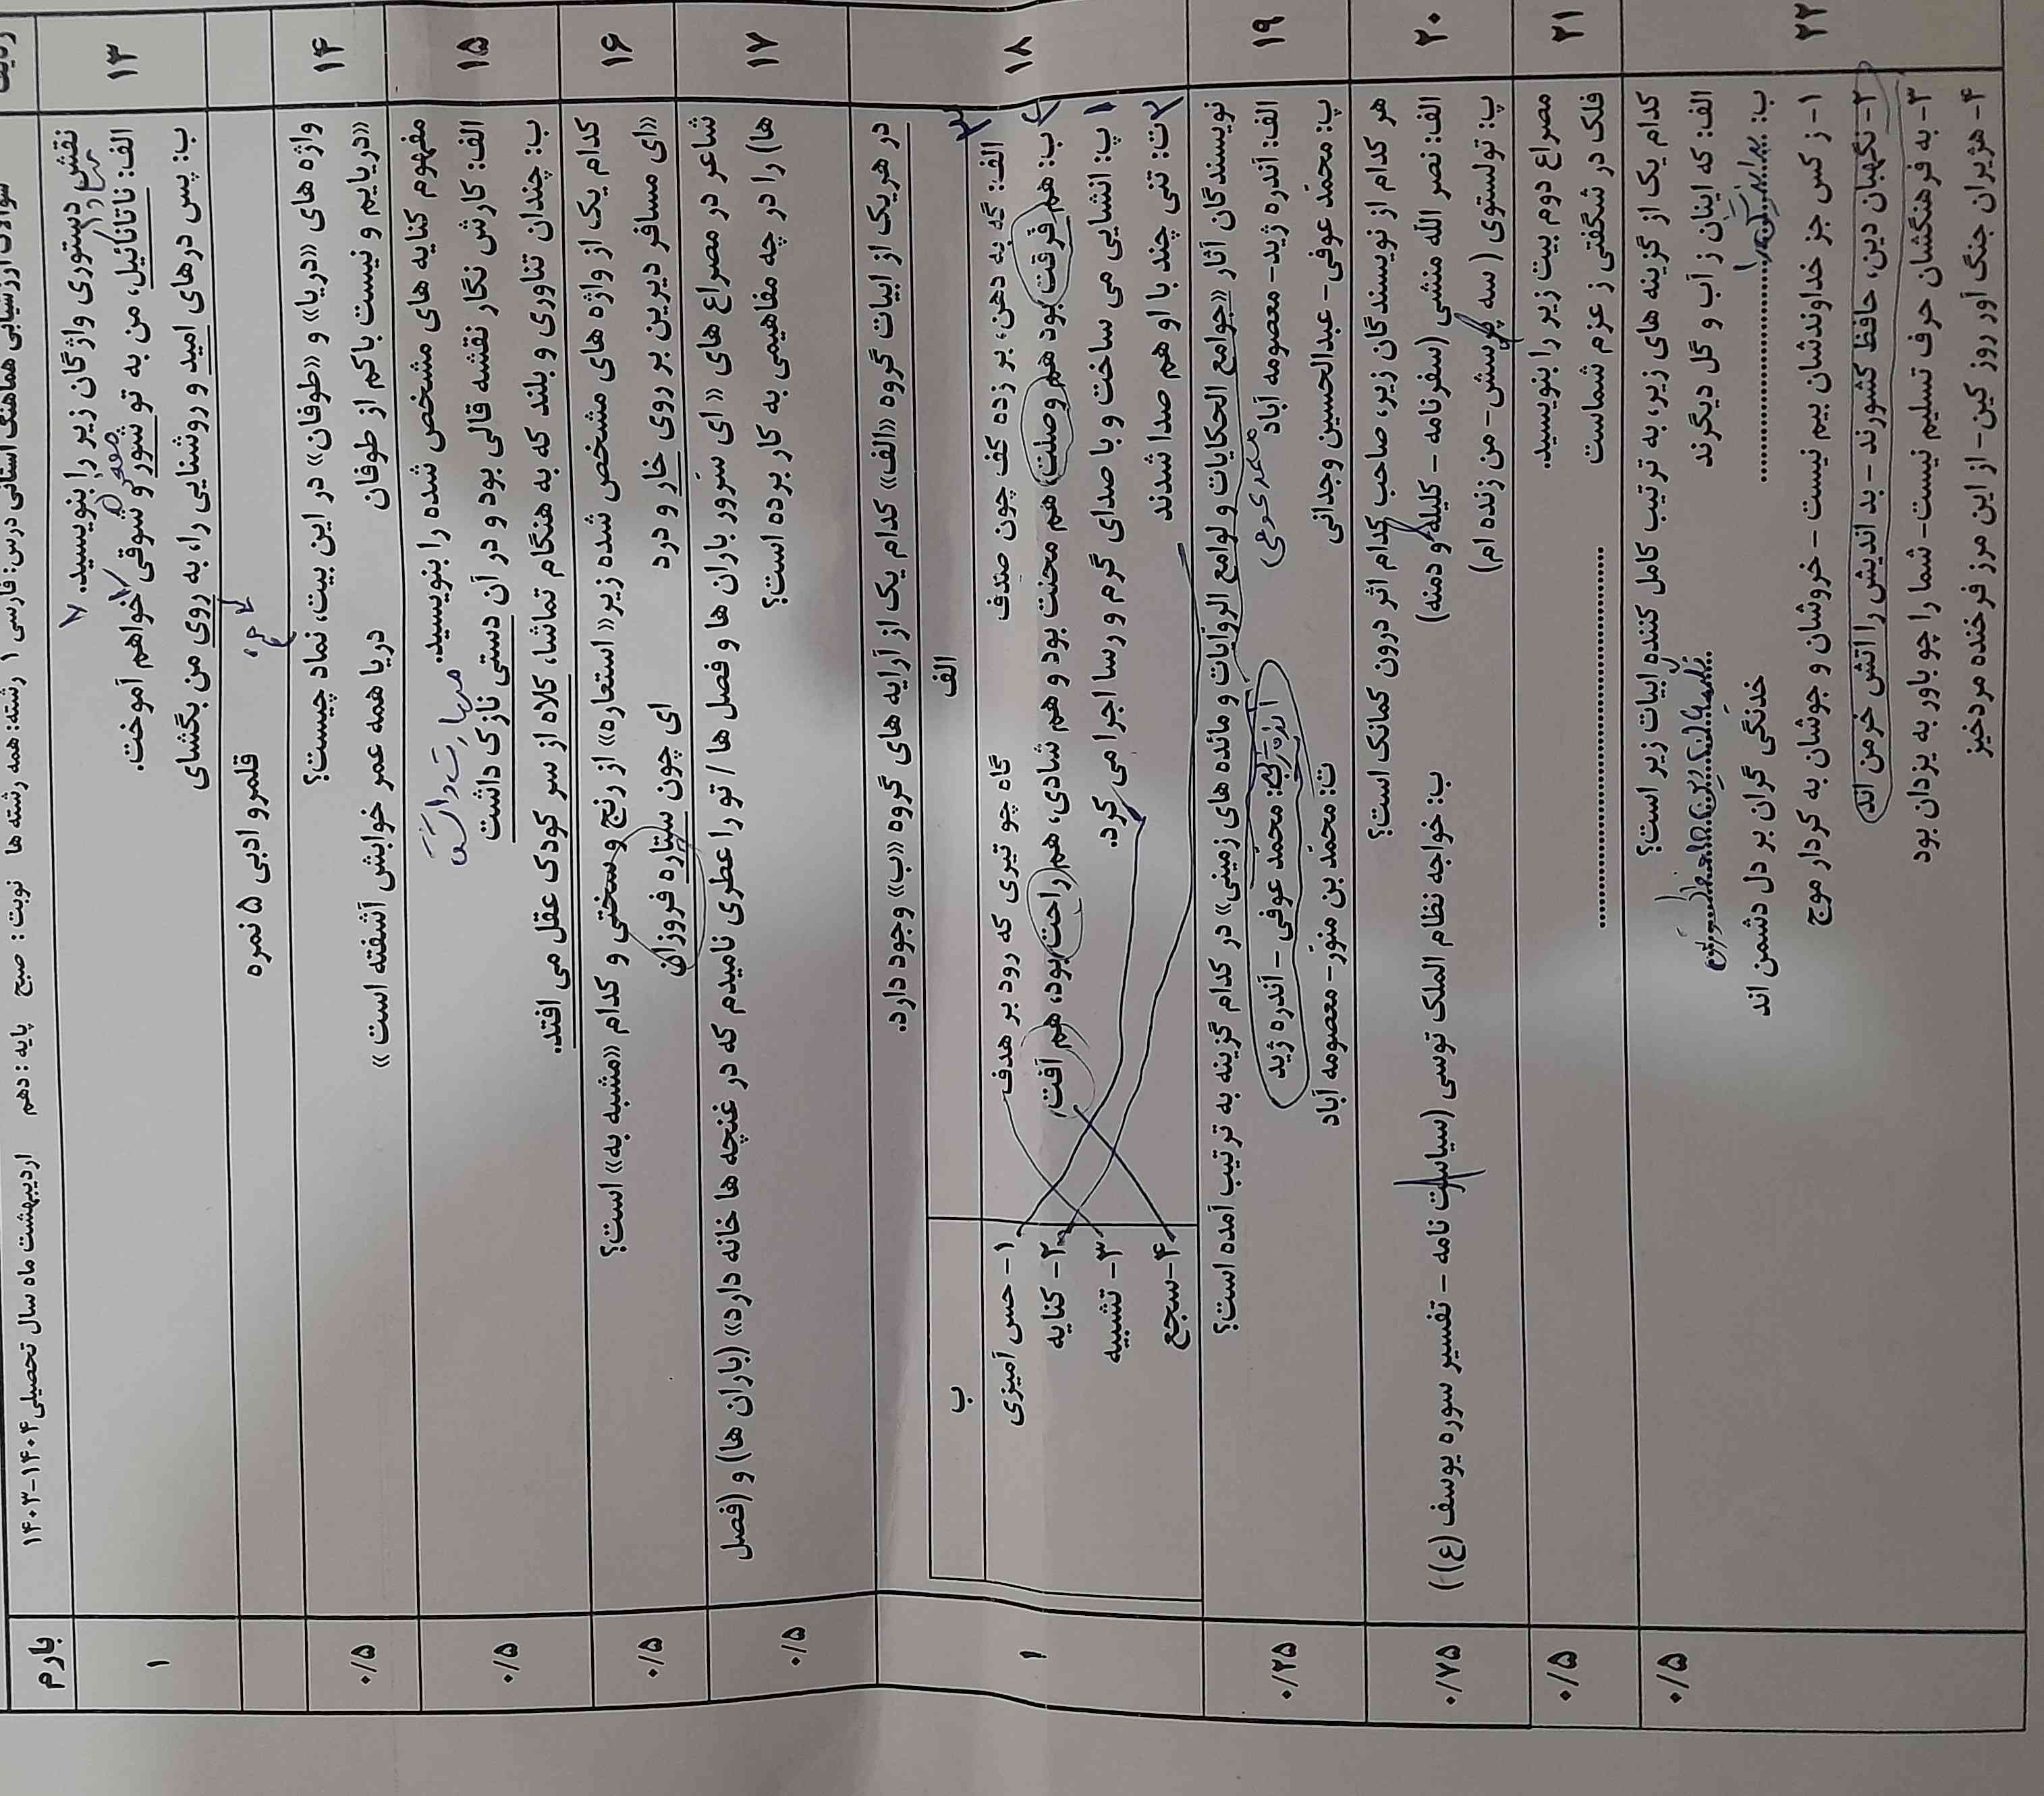 سوالات ارزشیابی هماهنگ استانی درس: فارسی ۱ رشته: همه رشته ها نوبت: صبح پایه: دهم اردیبهشت ماه سال تحصیلی ۱۴۰۴-۱۴۰۳
ردیف
بارم
۱۳
نقش دستوری واژگان زیر را بنویسید.
۱
الف: ناتانائیل، من به تو شور و شوقی خواهم آموخت.
ب: پس درهای امید و روشنایی را، به روی من بگشای
قلمرو ادبی ۵ نمره
۱۴
واژه های «دریا» و «طوفان» در این بیت، نماد چیست؟
۰/۵
«دریایم و نیست باکم از طوفان دریا همه عمر خوابش آشفته است»
۱۵
مفهوم کنایه های مشخص شده را بنویسید.
۰/۵
الف: کارش نگار نقشه قالی بود و در آن دستی نازک داشت
ب: چندان تناوری و بلند که به هنگام تماشا، کلاه از سر کودک عقل می افتد.
۱۶
کدام یک از واژه های مشخص شده زیر «استعاره» از رنج و سختی و کدام «مشبه به» است؟
۰/۵
«ای مسافر دیرین بر روی خار و درد ای چون ستاره فروزان
۱۷
شاعر در مصراع های «ای سَرور باران ها و فصل ها / تو را عطری نامیدم که در غنچه ها خانه دارد» (باران ها) و (فصل
ها) را در چه مفاهیمی به کار برده است؟
۰/۵
۱۸
در هریک از ابیات گروه «الف» کدام یک از آرایه های گروه «ب» وجود دارد.
۱
الف
ب
الف: گه به دهن، بر زده کف چون صدف گاه چو تیری که رود بر هدف
۱- حس آمیزی
ب: هم فرقت بود هم وصلت، هم محنت بود و هم شادی، هم راحت بود، هم آفت،
۲- کنایه
پ: انشایی می ساخت و با صدای گرم و رسا اجرا می کرد.
۳- تشبیه
ت: تنی چند با او هم صدا شدند
۴- سجع
۱۹
نویسندگان آثار «جوامع الحکایات و لوامع الروایات و مائده های زمینی» در کدام گزینه به ترتیب آمده است؟
۰/۲۵
الف: آندره ژید- معصومه آباد
ب: محمّد عوفی - آندره ژید
پ: محمّد عوفی- عبدالحسین وجدانی
ت: محمّد بن منوّر- معصومه آباد
۲۰
هر کدام از نویسندگان زیر، صاحب کدام اثر درون کمانک است؟
۰/۷۵
الف: نصر الله منشی (سفر نامه - کلیله و دمنه) ب: خواجه نظام الملک توسی (سیاست نامه - تفسیر سوره یوسف (ع))
پ: تولستوی (سه پرسش- من زنده ام)
۲۱
مصراع دوم بیت زیر را بنویسید.
۰/۵
فلک در شگفتی ز عزم شماست ................................................
۲۲
کدام یک از گزینه های زیر، به ترتیب کامل کننده ابیات زیر است؟
۰/۵
الف: که اینان ز آب و گل دیگرند
ب: ................................ خدنگی گران بر دل دشمن اند
۱- ز کس جز خداوندشان بیم نیست - خروشان و جوشان به کردار موج
۲- نگهبان دین، حافظ کشورند - بد اندیش را آتش خرمن اند
۳- به فرهنگشان حرف تسلیم نیست- شما را چو باور به یزدان بود
۴- هژبران جنگ آور روز کین - از این مرز فرخنده مردخیز